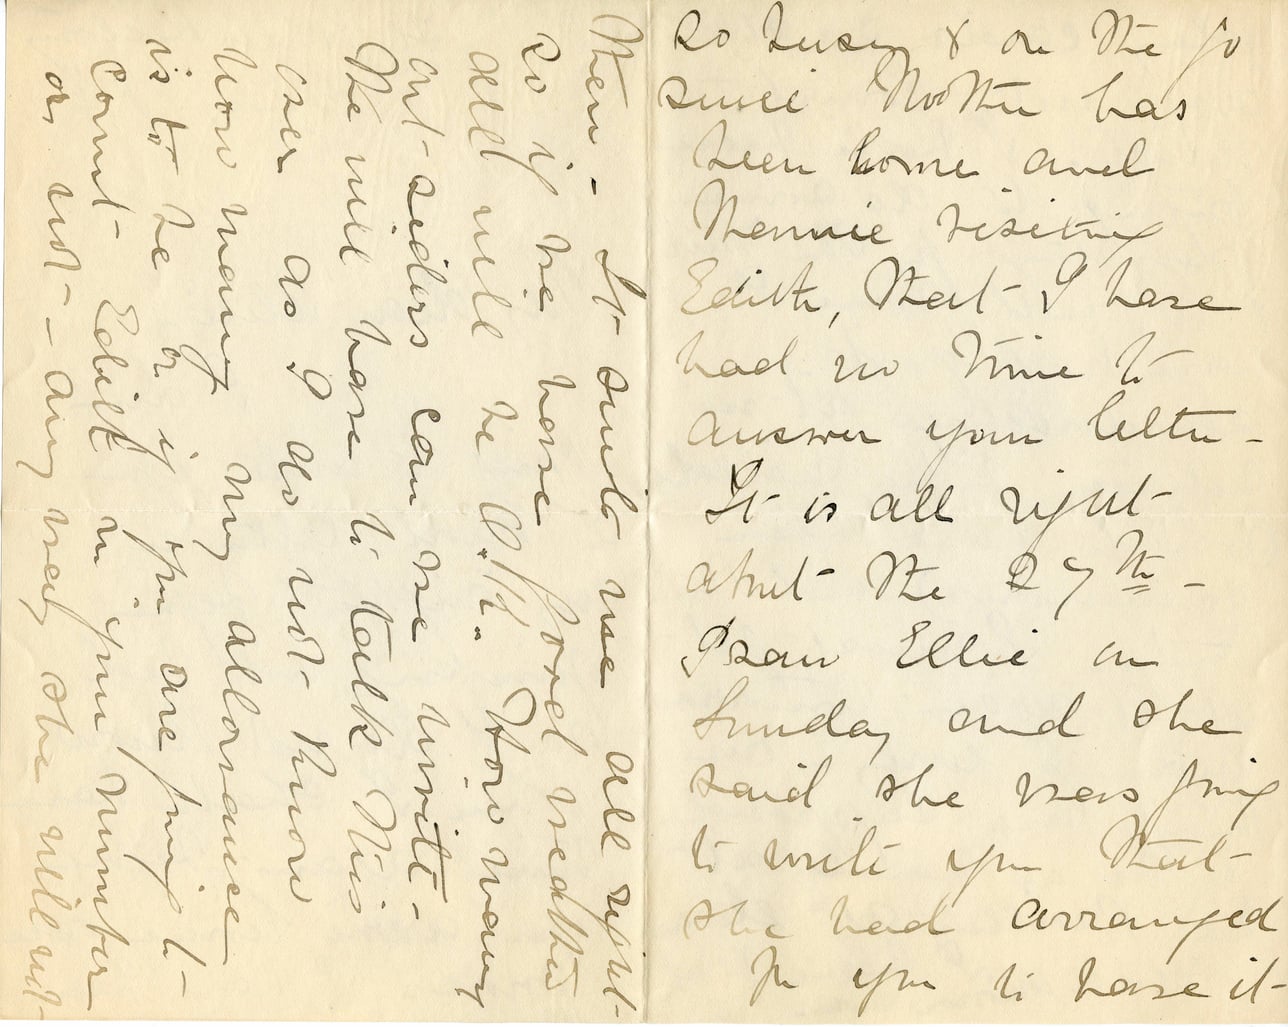 so busy & on the go
since Mother has
been home and
Mennie visiting
Edith, that I have
had no time to
answer your letter -
It is all right
about the 27th -
I saw Ellie on
Sunday and she
said she was going
to write you that
she had arranged
for you to have it
then - It suits me all right -
so if we have good weather
all will be O.K. How many
out-siders can we invite -
We will have to talk this
over as I do not know
how many my allowance
is to be or if you are going to
count Edith in your number
or not - any way she will not